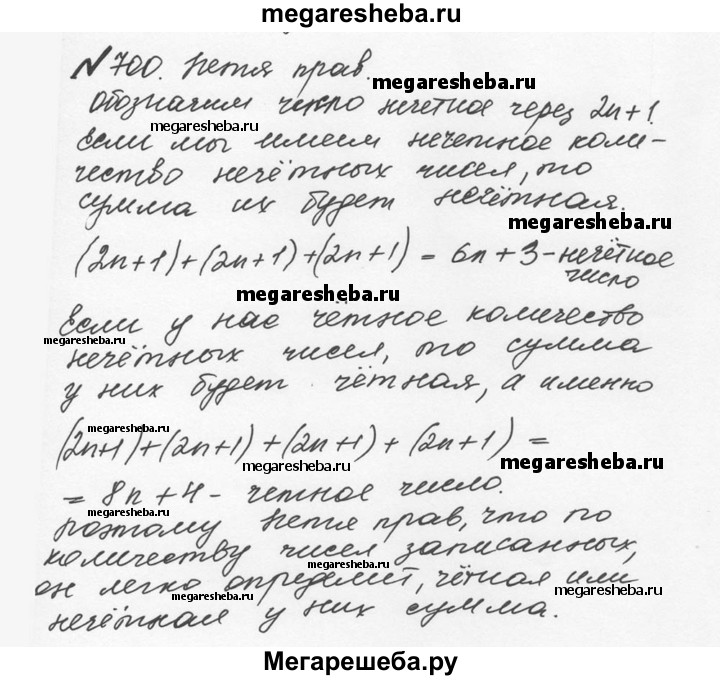 megaresheba.ru
№700. Петя прав.
megaresheba.ru
Обозначим число нечётное через 2n+1.
megaresheba.ru
Если мы имеем нечетное коли-
чество нечётных чисел, то
сумма их будет нечётная.
megaresheba.ru
(2n+1)+(2n+1)+(2n+1) = 6n+3 - нечётное
число
megaresheba.ru
Если у нас чётное количество
megaresheba.ru
нечётных чисел, то сумма
у них будет чётная, а именно
megaresheba.ru
(2n+1)+(2n+1)+(2n+1)+(2n+1) =
megaresheba.ru
megaresheba.ru
= 8n+4 - четное число.
megaresheba.ru
Поэтому Петя прав, что по
количеству чисел записанных,
он легко определит, чётная или
megaresheba.ru
megaresheba.ru
megaresheba.ru
нечётная у них сумма.
Мегарешеба.ру